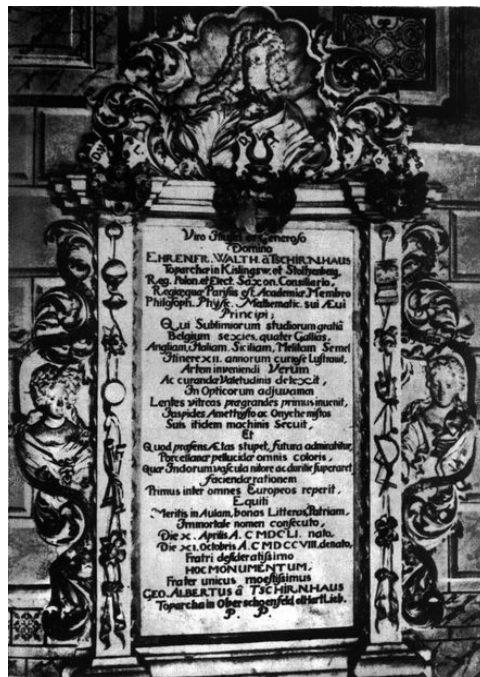 Viro Illustri et Generoso
Domino
EHRENFR. WALTH. â TSCHIRNHAUS
Toparcha in Kislingsw. et Stoltzenberg
Reg. Polon. et Elect. Saxon. Consiliario,
Regiaeque Parisiis est Academiae Membro
Philosoph. Physic. Mathematic. sui Ævi
Principi;
Qui Sublimiorum studiorum gratiâ
Belgium sexies, quater Gallias,
Angliam, Italiam, Siciliam, Melitam Semel
Itinere XII. annorum curiose Lustravit,
Artem inveniendi Verum
Ac curandae Valetudinis detexit,
In Opticorum adjuvamen
Lentes vitreas praegrandes primus invenit,
Jaspides Amethysto ac Onyche mistos
Suis itidem machinis Secuit,
Et
Quod praesens Ætas stupet, futura admirabitur,
Porcellanae pellucidae omnis coloris,
Quae Indorum vascula nitore ac duritie superaret
faciendae rationem
Primus inter omnes Europeos reperit,
Equiti
Meritis in Aulam, bonas Litteras, Patriam,
Immortale nomen consecuto,
Die X. Aprilis A. C MDCLI. nato,
Die XI. Octobris A. C MDCCVIII. denato,
Fratri desideratissimo
HOC MONUMENTUM.
Frater unicus moestissimus
GEO. ALBERTUS â TSCHIRNHAUS
Toparcha in Oberschoenfeld et Hartlieb.
P. P.